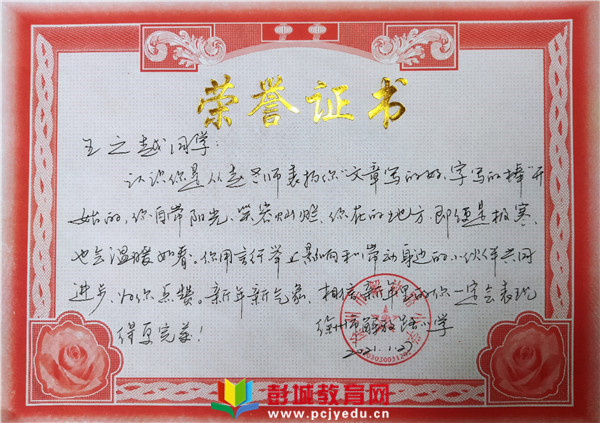 荣誉证书
王之越同学：
认识你是从赵老师表扬你“文章写的好、字写的棒”开
始的，你自带阳光、笑容灿烂，你在的地方，即便是极寒，
也会温暖如春。你用言行举止影响和带动身边的小伙伴共同
进步，为你点赞。新年新气象，相信新年里的你一定会表现
得更完美！
徐州市解放路小学
2021.1.27
彭城教育网
www.pcjyedu.cn